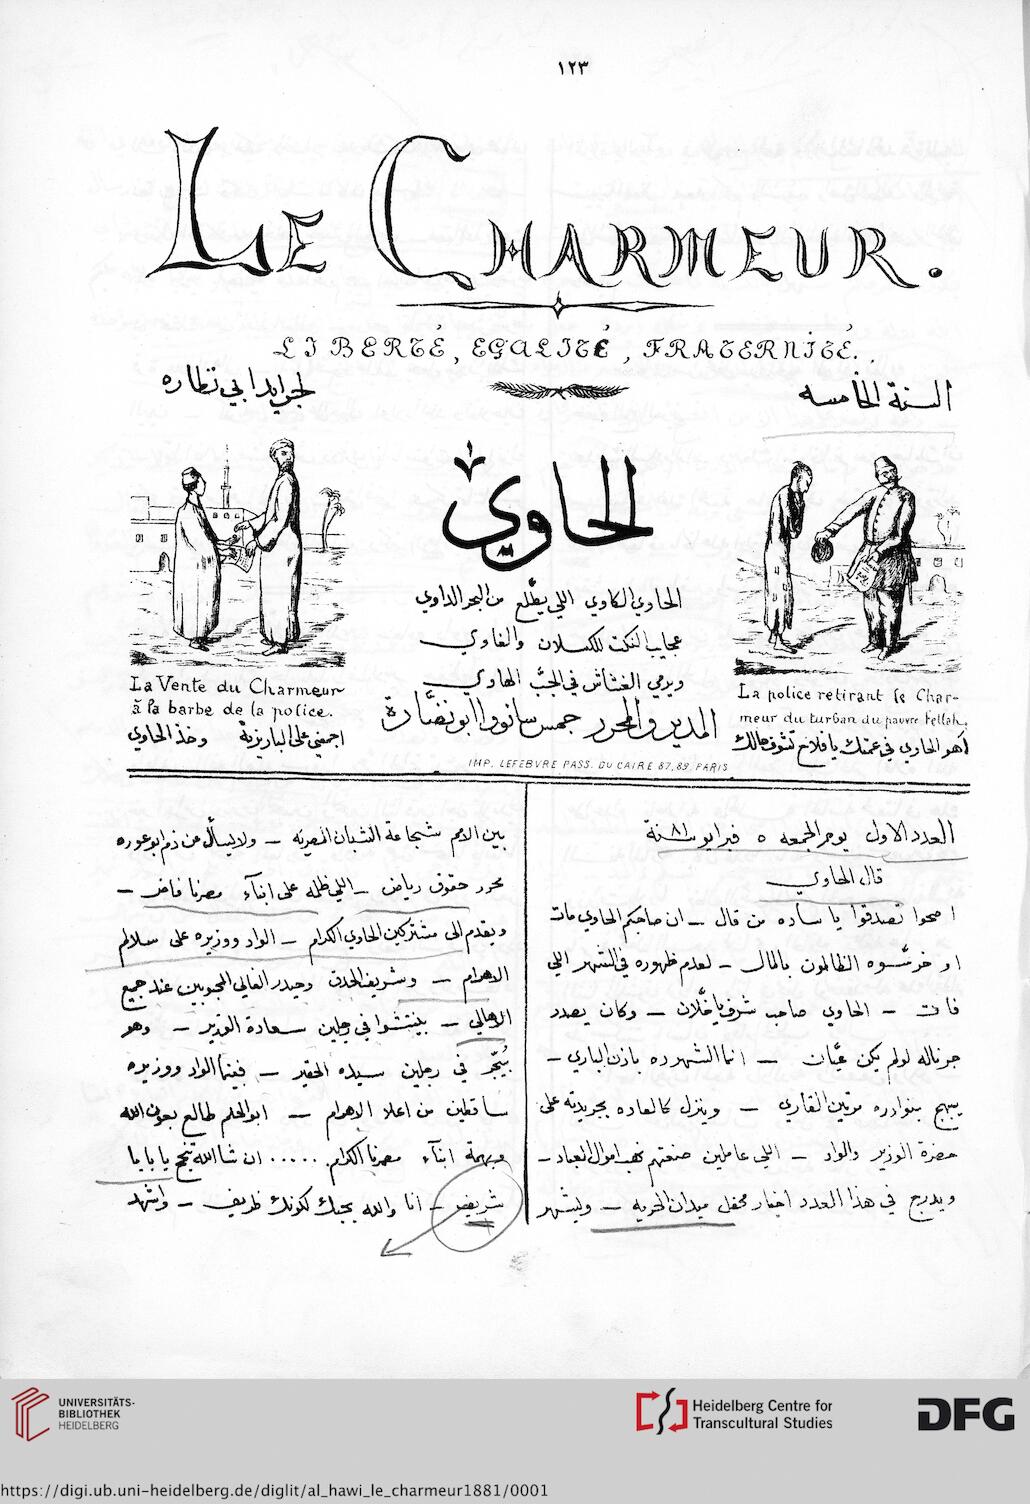 ١٢٣
LE CHARMEUR.
LIBERTÉ, EGALITÉ, FRATERNITÉ.
السنة الخامسه
لجرايد ابي نظاره
الحاوي
الحاوي الكاوي اللي يطلع من البحر الداوي
عجايب النكت للكسلان والغاوي
ويرمي الغشاش في الجب الهاوي
المدير والمحرر جمس سانووا ابو نضارة
La Vente du Charmeur
à la barbe de la police.
وخذ الحاوي
La police retirant le Char-
meur du turban du pauvre fellah.
اهو الحاوي في عمتك يا فلاح
IMP. LEFEBVRE PASS. DU CAIRE 87,89, PARIS
العدد الاول يوم الجمعه ٥ فبرايو سنة ٨١
قال الحاوي
اصحوا تصدقوا يا ساده من قال – ان صاحبكم الحاوي مات
او خرسوه الظالمون بالمال – لعدم ظهوره في الشهر اللي
فات – الحاوي صاحب شرف يا خلان – وكان يصدر
جرناله لو لم يكن عيان – انما الشهر ده باذن الباري –
يبهج بنوادره مرتين القاري – وينزل كالعاده بجريدته على
حضرة الوزير والواد – اللي عاملين صنعتهم نهب اموال العباد –
ويدرج في هذا العدد اخبار محفل ميدان الحريه – وليشهر
بين الامم شجاعة الشبان المصريه – ولا يسأل من ذم ابو عوره
محرر حقوق رياض – اللي ظلمه على ابنآء مصرنا فاض –
ويقدم الى مشتركين الحاوي الكرام – الواد ووزيره على سلالم
الاهرام – وشريف الحدق وحيدر الغالي المحبوبين عند جميع
الاهالي – في رجلين سعادة الوزير – وهو
في رجلين سيده الحقير – فبينما الواد ووزيره
ساقطين من اعلا الاهرام – ابو الحلم طالع بعون الله
وبهمة ابنآء مصرنا الكرام ..... ان شا الله تنجح يا بابا
شريف – انا والله بحبك لكونك ظريف –
UNIVERSITÄTS-
BIBLIOTHEK
HEIDELBERG
Heidelberg Centre for
Transcultural Studies
DFG
https://digi.ub.uni-heidelberg.de/diglit/al_hawi_le_charmeur1881/0001